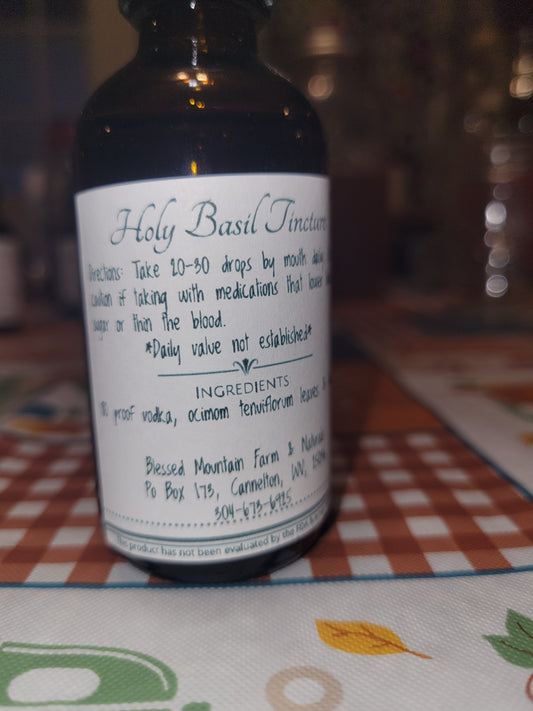 Holy Basil Tincture
Directions: Take 20-30 drops by mouth daily
caution if taking with medications that lower
sugar or thin the blood.
*Daily value not established*
INGREDIENTS
proof vodka, ocimom tenuiflorum leaves &
Blessed Mountain Farm & Natural
Po Box 173, Cannelton, WV,
304-673-6925
This product has not been evaluated by the FDA